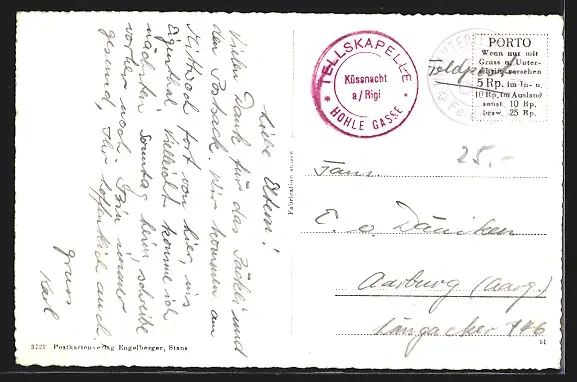 Liebe Eltern!
Vielen Dank für das Päckli und
den Taback. Wir kommen am
Mittwoch fort von hier, ins
Eigenthal. Vielleicht komme ich
nächsten Sonntag heim schreibe
vorher noch. Bin immer
gesund, Ihr hoffentlich auch.
Gruss
Karl
3723 Postkartenverlag Engelberger, Stans
TELLSKAPELLE
Küssnacht
a/Rigi
* HOHLE GASSE *
Feldpost
PORTO
Wenn nur mit
Gruss u. Unter-
schrift versehen
5 Rp. im In- u.
10 Rp. im Ausland
sonst 10 Rp.
bezw. 25 Rp.
25.-
Fam.
E. v Däniken
Aarburg (Aarg.)
Längacker
51